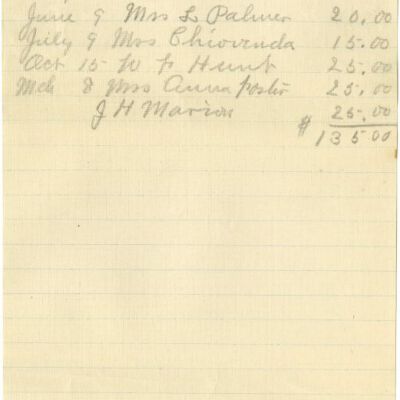 June 9 Mrs L Palmer 20.00
July 9 Mrs Chiovenda 15.00
Oct 15 W P Hunt 25.00
Mch 8 Miss Anna Foster 25.00
J H Marion 25.00
$ 135.00